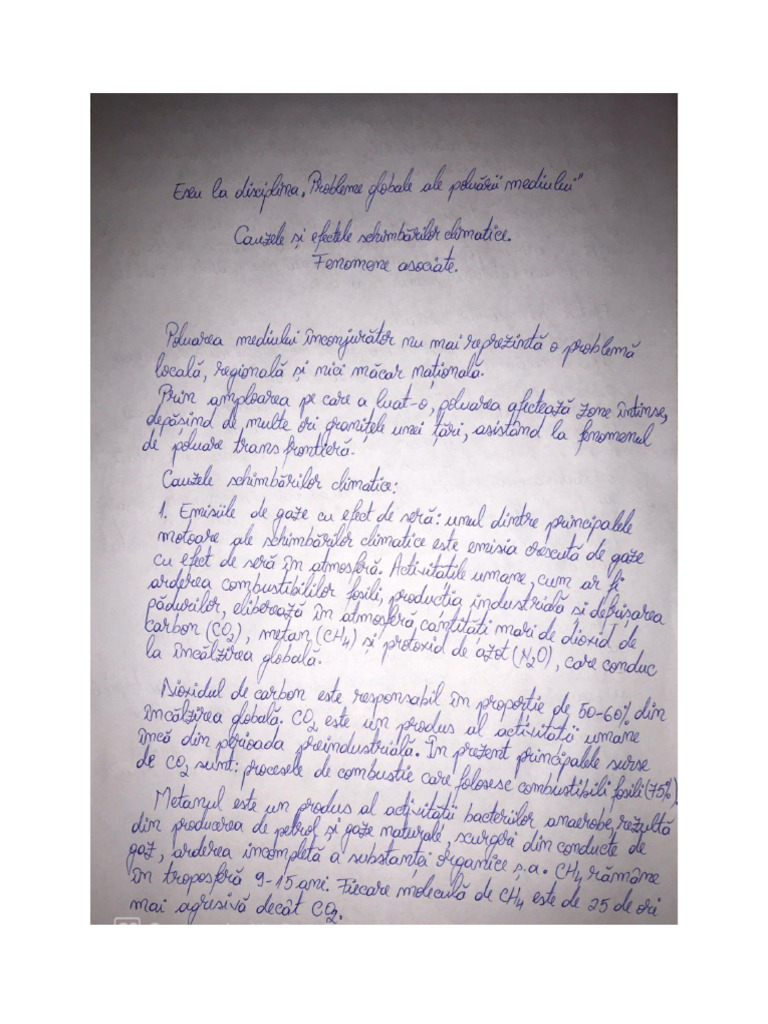 Eseu la disciplina „Probleme globale ale poluării mediului"
Cauzele și efectele schimbărilor climatice.
Fenomene asociate.
Poluarea mediului înconjurător nu mai reprezintă o problemă
locală, regională și nici măcar națională.
Prin amploarea pe care a luat-o, poluarea afectează zone întinse,
depășind de multe ori granițele unei țări, asistând la fenomenul
de poluare transfrontieră.
Cauzele schimbărilor climatice:
1. Emisiile de gaze cu efect de seră: unul dintre principalele
motoare ale schimbărilor climatice este emisia crescută de gaze
cu efect de seră în atmosferă. Activitatile umane, cum ar fi
arderea combustibililor fosili, producția industrială și defrișarea
pădurilor, eliberează în atmosferă cantități mari de dioxid de
carbon (CO2), metan (CH4) și protoxid de azot (N2O), care conduc
la încălzirea globală.
Dioxidul de carbon este responsabil în proporție de 50-60% din
încălzirea globală. CO2 este un produs al activității umane
încă din perioada preindustrială. În prezent principalele surse
de CO2 sunt: procesele de combustie care folosesc combustibili fosili (75%).
Metanul este un produs al activității bacteriilor anaerobe, rezultă
din producerea de petrol și gaze naturale, scurgeri din conducte de
gaz, arderea incompletă a substanței organice ș.a. CH4 rămâne
în troposferă 9-15 ani. Fiecare moleculă de CH4 este de 25 de ori
mai agresivă decât CO2.